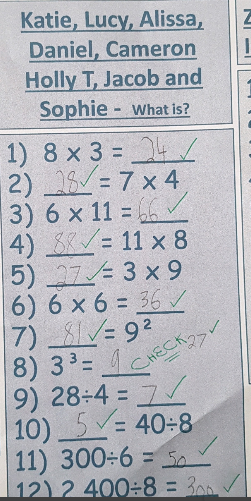 Katie, Lucy, Alissa,
Daniel, Cameron
Holly T, Jacob and
Sophie - What is?
1) 8 × 3 = 24 ✓
2) 28 ✓ = 7 × 4
3) 6 × 11 = 66 ✓
4) 88 ✓ = 11 × 8
5) 27 ✓ = 3 × 9
6) 6 × 6 = 36 ✓
7) 81 ✓ = 9²
8) 3³ = 9 CHECK 27 ✓
9) 28÷4 = 7 ✓
10) 5 ✓ = 40÷8
11) 300÷6 = 50 ✓
12) 2 400÷8 = 300 ✓